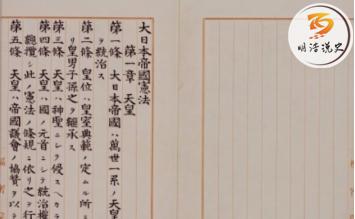 大日本帝國憲法
第一章 天皇
第一條 大日本帝國ハ萬世一系ノ天皇
ヲ統治ス
第二條 皇位ハ皇室典範ノ定ムル所
リ皇男子孫之ヲ繼承ス
第三條 天皇ハ神聖ニシテ侵スヘカラ
第四條 天皇ハ國ノ元首ニシテ統治權
總攬シ此ノ憲法ノ條規ニ依リ之ヲ行
第五條 天皇ハ帝國議會ノ協贊ヲ以テ
说史